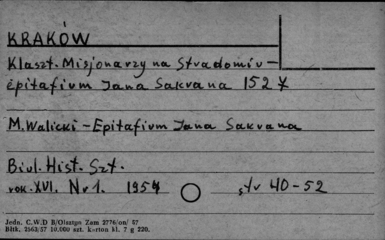 KRAKÓW
Klaszt. Misjonarzy na Stradomiu -
epitafium Jana Sakrana 1527
M. Walicki - Epitafium Jana Sakrana
Biul. Hist. Szt.
rok. XVI. Nr 1. 1954 str 40-52
Jedn. C.W.D B/Olsztyn Zam 2776/on/ 57
Bltk. 2563/57 10.000 szt. karton kl. 7 g 220.